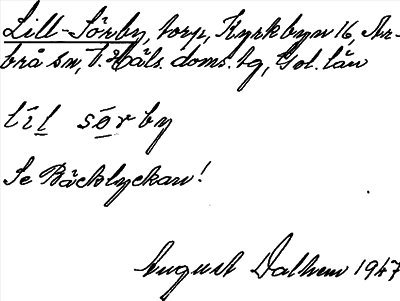 Lill-Sörby, torp, Kyrkbyn 16, Ar-
brå sn, V. Häls. doms. tg, Gvl. län
lil sörby
Se Bäcklyckan!
August Dalhem 1947